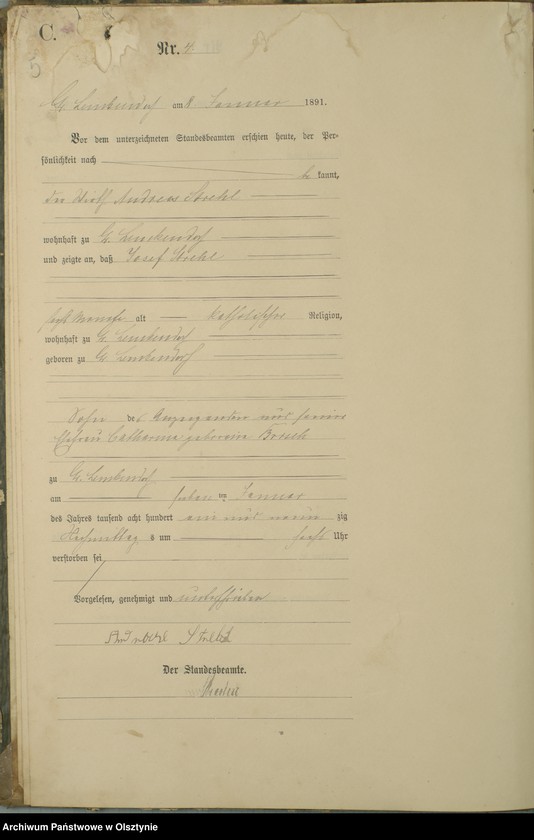 C.
Nr. 4
Gr. Lemkendorf am 8 Januar 1891.
Vor dem unterzeichneten Standesbeamten erschien heute, der Per-
sönlichkeit nach
be kannt,
der Wirth Andreas
wohnhaft zu Gr. Lemkendorf
und zeigte an, daß Josef
sechs Monate alt katholischer Religion,
wohnhaft zu Gr. Lemkendorf
geboren zu Gr. Lemkendorf
Sohn des Anzeigenden und seiner
Ehefrau Catharina geborene
zu Gr. Lemkendorf
am sieben ten Januar
des Jahres tausend acht hundert ein und neun zig
Nachmittag s um sechs Uhr
verstorben sei
Vorgelesen, genehmigt und unterschrieben
Der Standesbeamte.
Archiwum Państwowe w Olsztynie